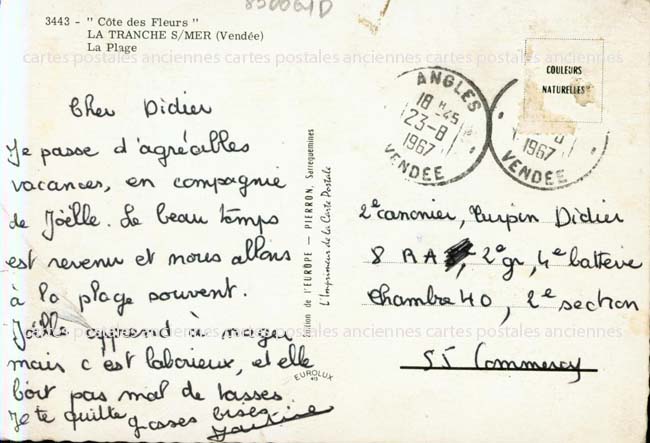 850061D
3443 - " Côte des Fleurs "
LA TRANCHE S/MER (Vendée)
La Plage
cartes postales anciennes cartes postales anciennes cartes postales anciennes
Cher Didier
Je passe d'agréables
vacances, en compagnie
de Joëlle. Le beau temps
est revenu et nous allons
à la plage souvent.
Joëlle apprend à nager
mais c'est laborieux, et elle
boit pas mal de tasses
Je te quitte grosses bises
Edition de l'EUROPE — PIERRON, Sarreguemines
L'Imprimeur de la Carte Postale
EUROLUX
ANGLES
18 H 45
23-8
1967
VENDÉE
1967
VENDÉE
COULEURS
NATURELLES
2e canonier, Turpin Didier
8 RA, 2e gr, 4e batterie
Chambre 40, 2e section
55 Commercy
cartes postales anciennes cartes postales anciennes cartes postales anciennes